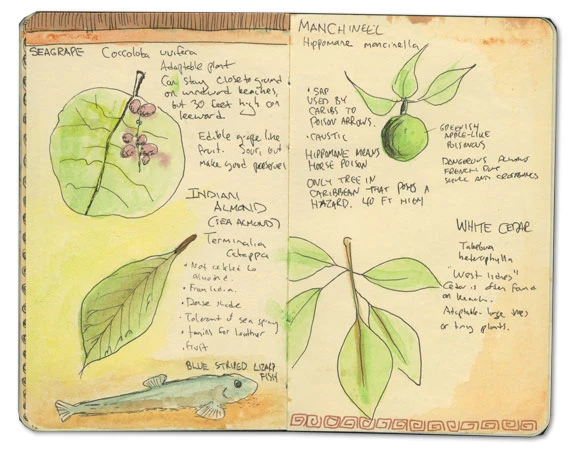 SEAGRAPE Coccoloba uvifera
Adaptable plant
Can stay close to ground
on windward beaches,
but 30 feet high on
leeward.
Edible grape like
fruit. Sour, but
make good preserves
INDIAN
ALMOND
(SEA ALMOND)
Terminalia
Catappa
• Not related to
Almond.
• From India.
• Dense shade
• Tolerant of sea spray
• tanins for leather
• Fruit
BLUE STRIPED LIZARD
FISH
MANCHINEEL
Hippomane mancinella
• SAP
USED BY
CARIBS TO
POISON ARROWS.
• CAUSTIC
HIPPOMANE MEANS
HORSE POISON
ONLY TREE IN
CARIBBEAN THAT POSES A
HAZARD. 40 FT HIGH
GREENISH
APPLE-LIKE
POISONOUS
DANGEROUS
FRENCH
AND
WHITE CEDAR
Tabebuia
heterophylla
"West Indies"
Cedar is often found
on beach.
Adaptable - large trees
or tiny plants.